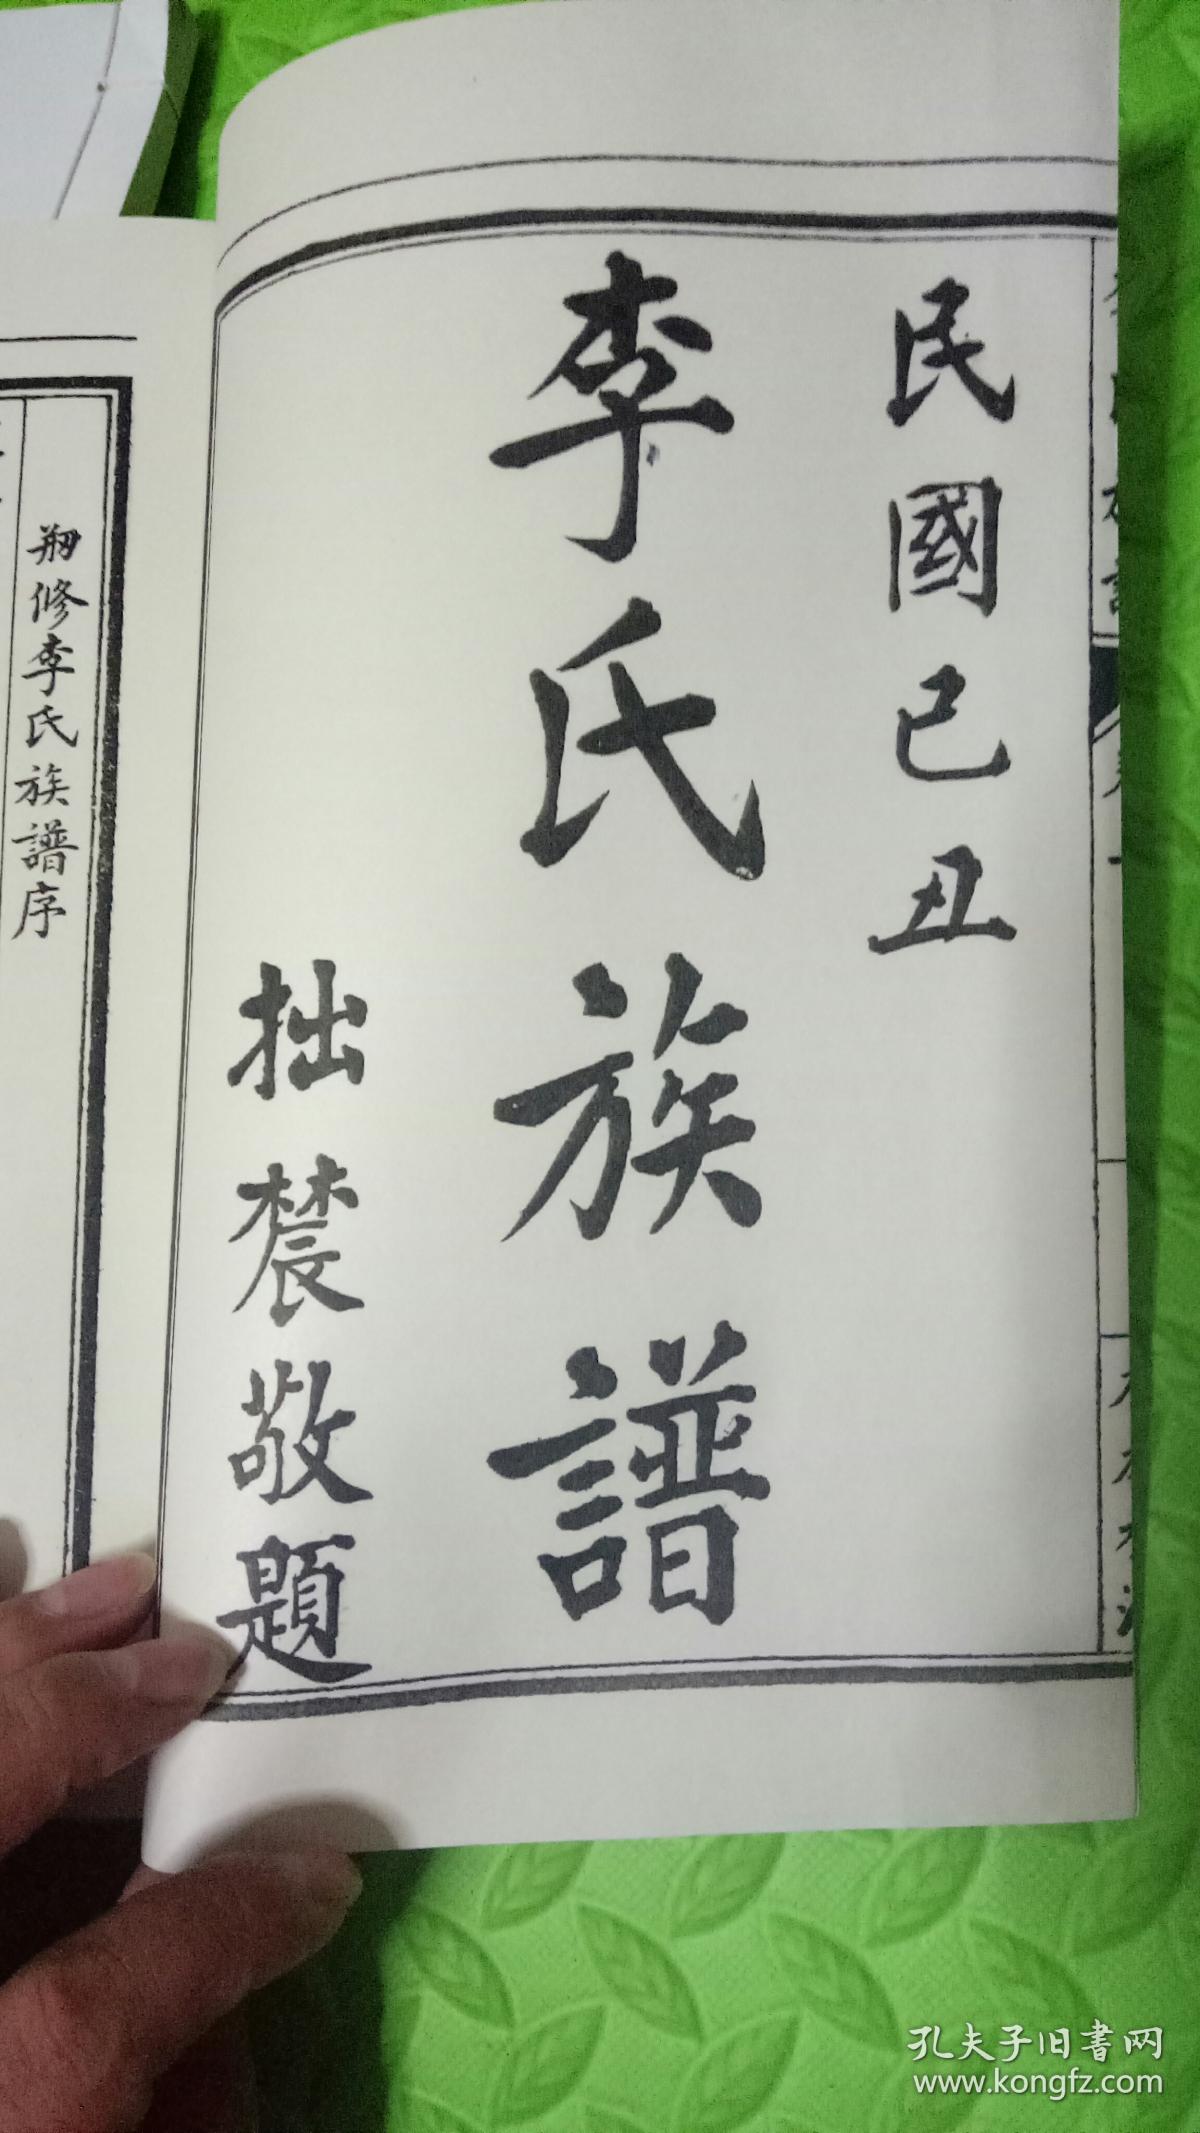 民國己丑
李氏族譜
拙䢉敬題
刱修李氏族譜序
孔夫子旧書网
www.kongfz.com